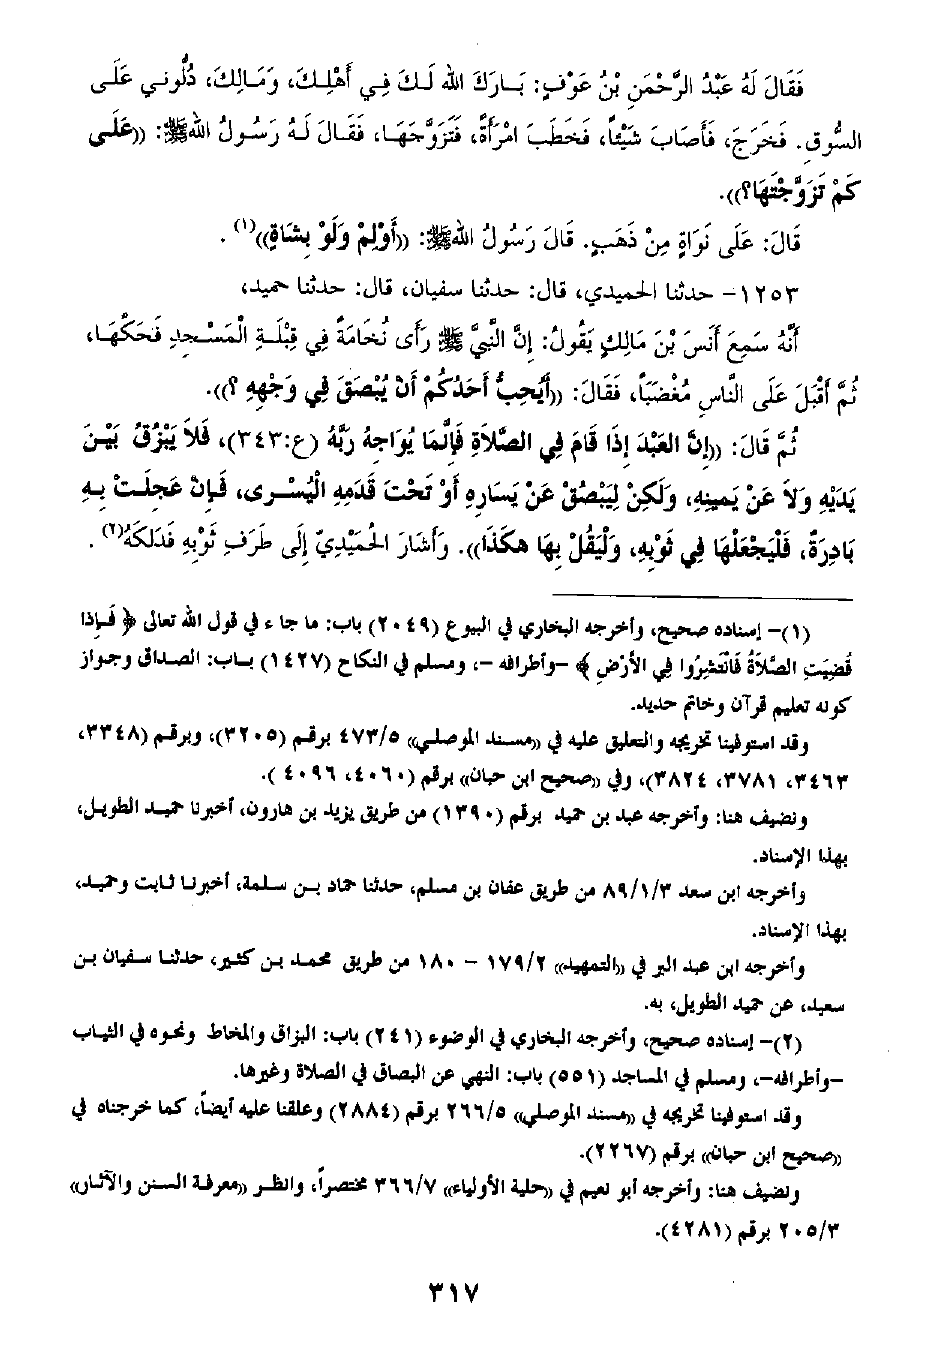 فَقَالَ لَهُ عَبْدُ الرَّحْمَنِ بْنُ عَوْفٍ: بَارَكَ اللهُ لَكَ فِي أَهْلِكَ، وَمَالِكَ، دُلُّونِي عَلَى
السُّوقِ. فَخَرَجَ، فَأَصَابَ شَيْئاً، فَخَطَبَ امْرَأَةً، فَتَزَوَّجَهَا، فَقَالَ لَهُ رَسُولُ اللهِ ﷺ: ((عَلَى
كَمْ تَزَوَّجْتَهَا؟)).
قَالَ: عَلَى نَوَاةٍ مِنْ ذَهَبٍ. قَالَ رَسُولُ اللهِ ﷺ: ((أَوْلِمْ وَلَوْ بِشَاةٍ))(١).
١٢٥٣- حدثنا الحميدي، قال: حدثنا سفيان، قال: حدثنا حميد،
أَنَّهُ سَمِعَ أَنَسَ بْنَ مَالِكٍ يَقُولُ: إِنَّ النَّبِيَّ ﷺ رَأَى نُخَامَةً فِي قِبْلَةِ الْمَسْجِدِ فَحَكَّهَا،
ثُمَّ أَقْبَلَ عَلَى النَّاسِ مُغْضَباً، فَقَالَ: ((أَيُحِبُّ أَحَدُكُمْ أَنْ يُبْصَقَ فِي وَجْهِهِ ؟)).
ثُمَّ قَالَ: ((إِنَّ العَبْدَ إِذَا قَامَ فِي الصَّلاَةِ فَإِنَّمَا يُوَاجِهُ رَبَّهُ (ع:٣٤٣)، فَلاَ يَبْزُقْ بَيْنَ
يَدَيْهِ وَلاَ عَنْ يَمِينِهِ، وَلَكِنْ لِيَبْصُقْ عَنْ يَسَارِهِ أَوْ تَحْتَ قَدَمِهِ الْيُسْرى، فَإِنْ عَجِلَتْ بِهِ
بَادِرَةٌ، فَلْيَجْعَلْهَا فِي ثَوْبِهِ، وَلْيَقُلْ بِهَا هكَذَا)). وَأَشَارَ الحُمَيْدِيّ إِلَى طَرَفِ ثَوْبِهِ فَدَلَكَهُ(٢).
(١)- إسناده صحيح، وأخرجه البخاري في البيوع (٢٠٤٩) باب: ما جاء في قول الله تعالى ﴿ فَإِذا
قُضِيَتِ الصَّلاَةُ فَانْتَشِرُوا فِي الأَرْضِ ﴾ -وأطرافه -، ومسلم في النكاح (١٤٢٧) باب: الصداق وجواز
كونه تعليم قرآن وخاتم حديد.
وقد استوفينا تخريجه والتعليق عليه في ((مسند الموصلي)) ٤٧٣/٥ برقم (٣٢٠٥)، وبرقم (٣٣٤٨،
٣٤٦٣، ٣٧٨١، ٣٨٢٤)، وفي ((صحيح ابن حبان)) برقم (٤٠٦٠، ٤٠٩٦ ).
ونضيف هنا: وأخرجه عبد بن حميد برقم (١٣٩٠) من طريق يزيد بن هارون، أخبرنا حميد الطويل،
بهذا الإسناد.
وأخرجه ابن سعد ٨٩/١/٣ من طريق عفان بن مسلم، حدثنا حماد بن سلمة، أخبرنا ثابت وحميد،
بهذا الإسناد.
وأخرجه ابن عبد البر في ((التمهيد)) ١٧٩/٢ - ١٨٠ من طريق محمد بن كثير، حدثنا سفيان بن
سعيد، عن حميد الطويل، به.
(٢)- إسناده صحيح، وأخرجه البخاري في الوضوء (٢٤١) باب: البزاق والمخاط ونحوه في الثياب
-وأطرافه-، ومسلم في المساجد (٥٥١) باب: النهي عن البصاق في الصلاة وغيرها.
وقد استوفينا تخريجه في ((مسند الموصلي)) ٢٦٦/٥ برقم (٢٨٨٤) وعلقنا عليه أيضاً، كما خرجناه في
((صحيح ابن حبان)) برقم (٢٢٦٧).
ونضيف هنا: وأخرجه أبو نعيم في ((حلية الأولياء)) ٣٦٦/٧ مختصراً، وانظر ((معرفة السنن والآثار))
٢٠٥/٣ برقم (٤٢٨١).
٣١٧